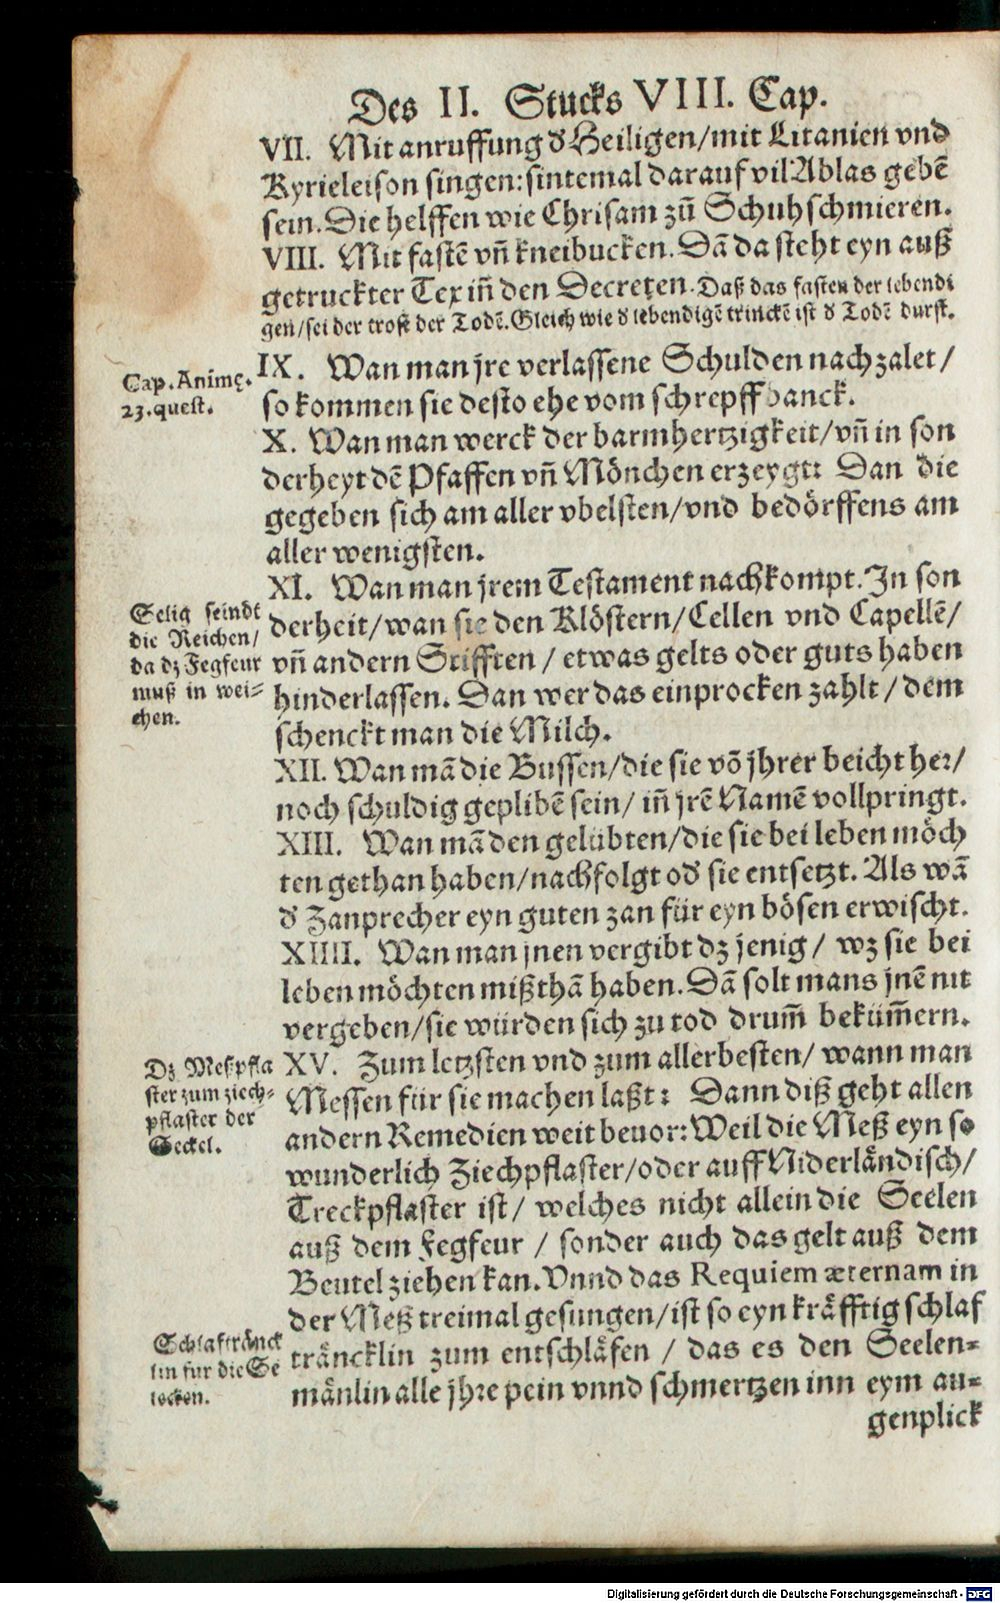 Des II. Stucks VIII. Cap.
VII. Mit anruffung d̕ Heiligen/mit Litanien vnd
Kyrieleison singen: sintemal darauf vil Ablas gebẽ
sein. Die helffen wie Chrisam zũ Schuhschmieren.
VIII. Mit fastẽ vñ kneibucken. Dã da steht eyn auß
getruckter Tex iñ den Decreten. Daß das fasten der lebendi
gen/sei der trost der Todẽ. Gleich wie d̕ lebendigẽ trinckẽ ist d̕ Todẽ durst.
Cap. Animę.
23. quest.
IX. Wan man jre verlassene Schulden nach zalet/
so kommen sie desto ehe vom schrepffbanck.
X. Wan man werck der barmhertzigkeit/vñ in son
derheyt dẽ Pfaffen vñ Mönchen erzeygt: Dan die
gegeben sich am aller vbelsten/vnd bedörffens am
aller wenigsten.
XI. Wan man jrem Testament nachkompt. In son
derheit/wan sie den Klöstern/Cellen vnd Capellẽ/
vñ andern Stifften / etwas gelts oder guts haben
hinderlassen. Dan wer das einprocken zahlt / dem
schenckt man die Milch.
Selig seindt
die Reichen/
da dz Fegfeur
muß in wei-
chen.
XII. Wan mã die Bussen/die sie võ jhrer beicht her/
noch schuldig geplibẽ sein/ iñ jrẽ Namẽ vollpringt.
XIII. Wan mã den gelübten/die sie bei leben möch
ten gethan haben/nachfolgt od̕ sie entsetzt. Als wã
d̕ Zanprecher eyn guten zan für eyn bösen erwischt.
XIIII. Wan man jnen vergibt dz jenig / wz sie bei
leben möchten mißthã haben. Dã solt mans jnẽ nit
vergeben/sie würden sich zu tod drum̃ beküm̃ern.
XV. Zum letzsten vnd zum allerbesten/ wann man
Messen für sie machen laßt: Dann diß geht allen
andern Remedien weit beuor: Weil die Meß eyn so
wunderlich Ziechpflaster/oder auff Niderländisch/
Treckpflaster ist / welches nicht allein die Seelen
auß dem Fegfeur / sonder auch das gelt auß dem
Beutel ziehen kan. Vnnd das Requiem æternam in
der Meß treimal gesungen/ist so eyn kräfftig schlaf
träncklin zum entschläfen / das es den Seelen-
mänlin alle jhre pein vnnd schmertzen inn eym au-
genplick
Dz Meßpfla
ster zum ziech-
pflaster der
Seckel.
Schlaftränck
lin für die Se
lecken.
Digitalisierung gefördert durch die Deutsche Forschungsgemeinschaft - DFG